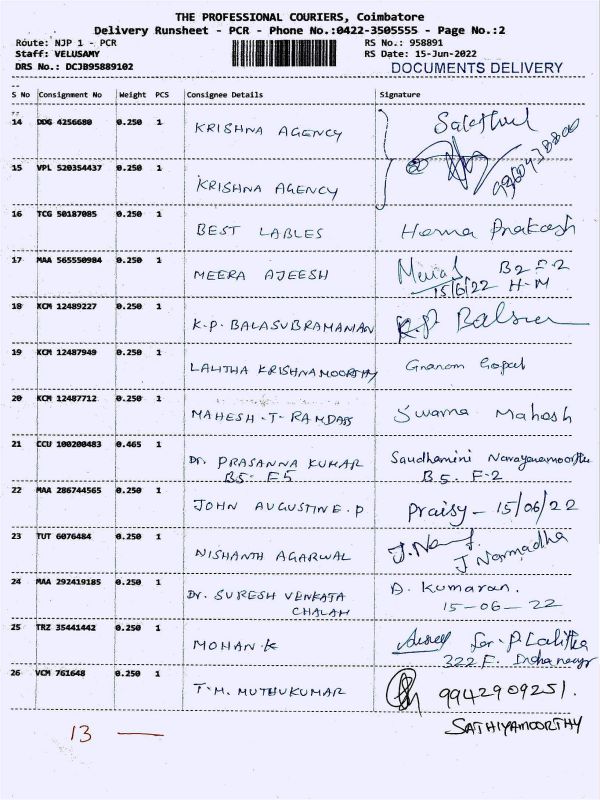 THE PROFESSIONAL COURIERS, Coimbatore
Delivery Runsheet - PCR - Phone No.:0422-3505555 - Page No.:2
Route: NJP 1 - PCR
RS No.: 958891
Staff: VELUSAMY
RS Date: 15-Jun-2022
DRS No.: DCJB95889102
DOCUMENTS DELIVERY
S No Consignment No Weight PCS Consignee Details Signature
14 DDG 4256680 0.250 1 KRISHNA AGENCY
15 VPL 520354437 0.250 1 KRISHNA AGENCY
16 TCG 50187085 0.250 1 BEST LABLES Hema Prakash
17 MAA 565550984 0.250 1 MEERA AJEESH B2 F-2
15/6/22 H-M
18 KCM 12489227 0.250 1 K.P. BALASUBRAMANIAN K.P
19 KCM 12487949 0.250 1 LALITHA KRISHNAMOORTHY Gnanam Gopal
20 KCM 12487712 0.250 1 MAHESH.T-RAMDASS Swarna Mahesh
21 CCU 100200483 0.465 1 Dr. PRASANNA KUMAR Saudhamini Narayanamoorthy
B5- F5 B5. F-2
22 MAA 286744565 0.250 1 JOHN AUGUSTINE.P Praisy - 15/06/22
23 TUT 6076484 0.250 1 NISHANTH AGARWAL
J Narmadha
24 MAA 292419185 0.250 1 Dr. SURESH VENKATA D. Kumaran.
CHALAM 15-06-22
25 TRZ 35441442 0.250 1 MOHAN.K for P. Lalitha
322 F.
26 VCM 761648 0.250 1 T.M. MUTHUKUMAR 9942909251.
SATHIYAMOORTHY
13 —